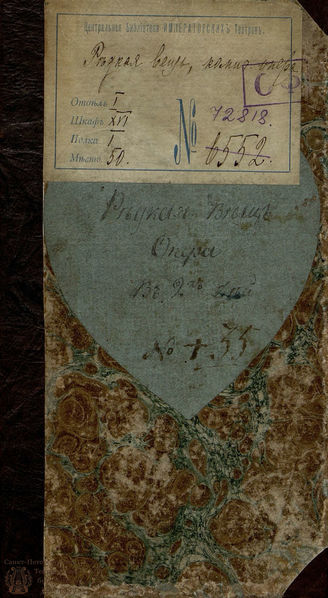 Центральная Библіотека ИМПЕРАТОРСКИХЪ Театровъ.
Рѣдкая вещь, комич опера
С
Отдѣлъ I
Шкафъ XVI
Полка I
Мѣсто 50.
№
72818.
6552.
Рѣдкая Вещь
Опера
Въ 2хъ
№ 55
Санкт-Пе